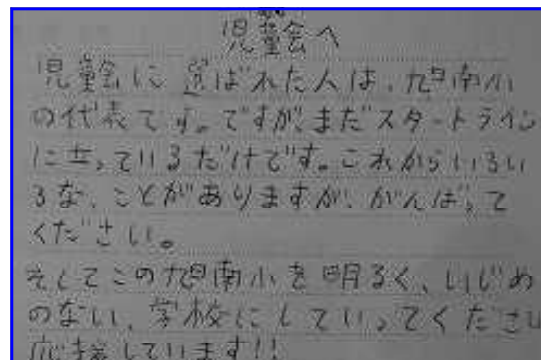 児童会へ
児童会に選ばれた人は、旭南小
の代表です。ですが、まだスタートライン
に立っているだけです。これからいろい
ろな、ことがありますが、がんばって
ください。
そしてこの旭南小を明るく、いじめ
のない、学校にしていってください
応援しています!!